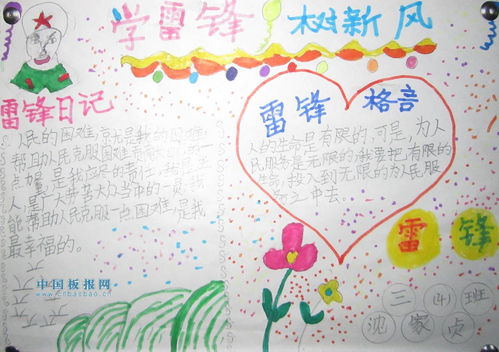 学雷锋 树新风
雷锋日记
人民的困难,就是我的困难,
帮助人民克服困难
点力量,是我应尽的责任,我是主
人,是广大劳苦大众当中的一员,我
能帮助人民克服一点困难,是我
最幸福的。
雷锋 格言
人的生命是有限的,可是,为人
民服务是无限的,我要把有限的
生命,投入到无限的为人民服
务之中去。
雷 锋
三 (4) 班
沈 家 贞
中国板报网
www.cnbanbao.cn